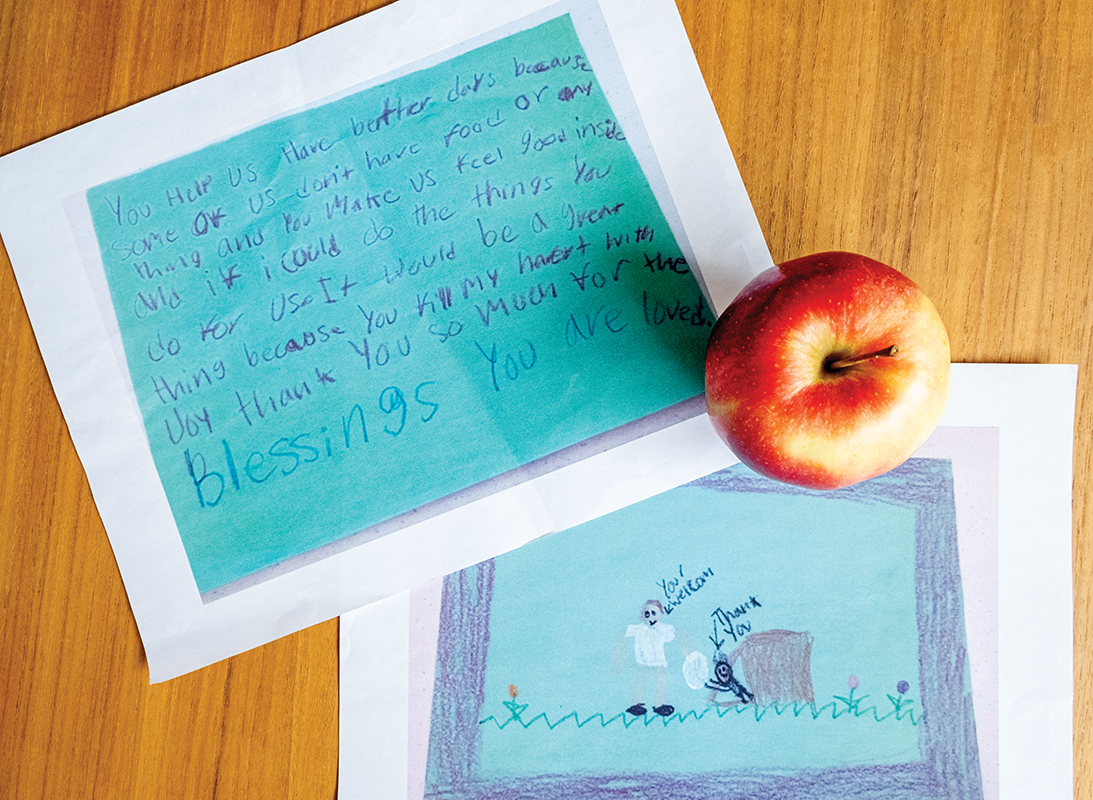 You Help US Have bertter days because
some of us don't have food or any
thing and You Make us feel good inside
and if i could do the things You
do for Us. It would be a great
thing because You fill my haert with
Joy thank You so Much for the
Blessings You are loved.
Your
welcom
Thank
You